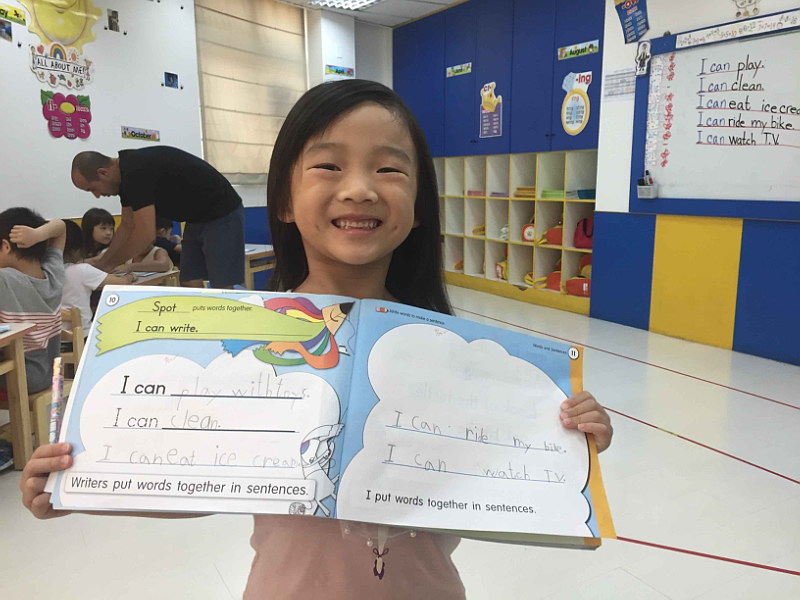 ALL ABOUT ME!
October
April
August
-ing
I can play.
I can clean.
I can eat ice crea
I can ride my bike.
I can watch T.V.
10
Spot puts words together.
I can write.
I can play with toys.
I can clean.
I can eat ice cream
Writers put words together in sentences.
Write words to make a sentence.
Words and Sentences 11
I can ride my bike.
I can watch TV.
I put words together in sentences.